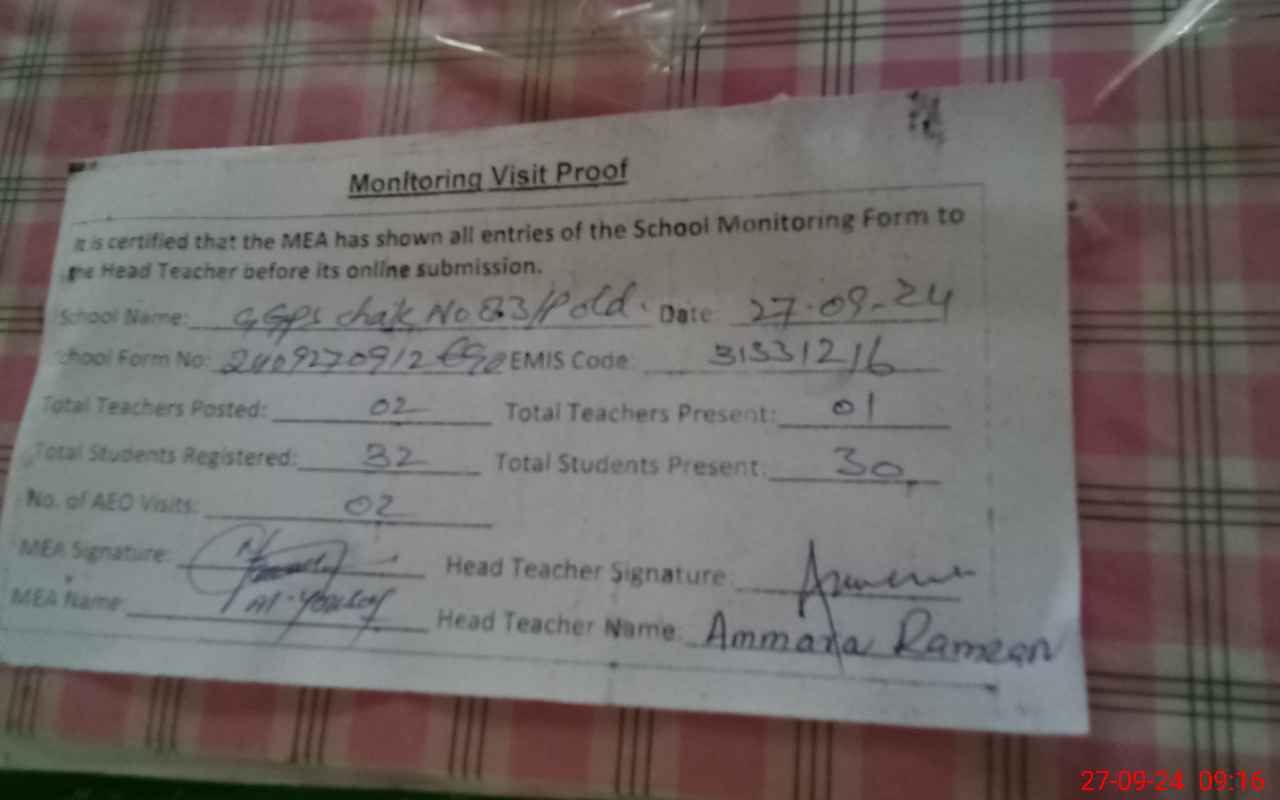 Monitoring Visit Proof
It is certified that the MEA has shown all entries of the School Monitoring Form to
the Head Teacher before its online submission.
School Name: GGPS chak No 83/P old. Date: 27-09-24
School Form No: 2409270912 EMIS Code: 31331216
Total Teachers Posted: 02 Total Teachers Present: 01
Total Students Registered: 32 Total Students Present: 30
No. of AEO Visits: 02
MEA Signature: Head Teacher Signature:
MEA Name: M. Yousaf Head Teacher Name: Ammara Ramzan
27-09-24 09:16